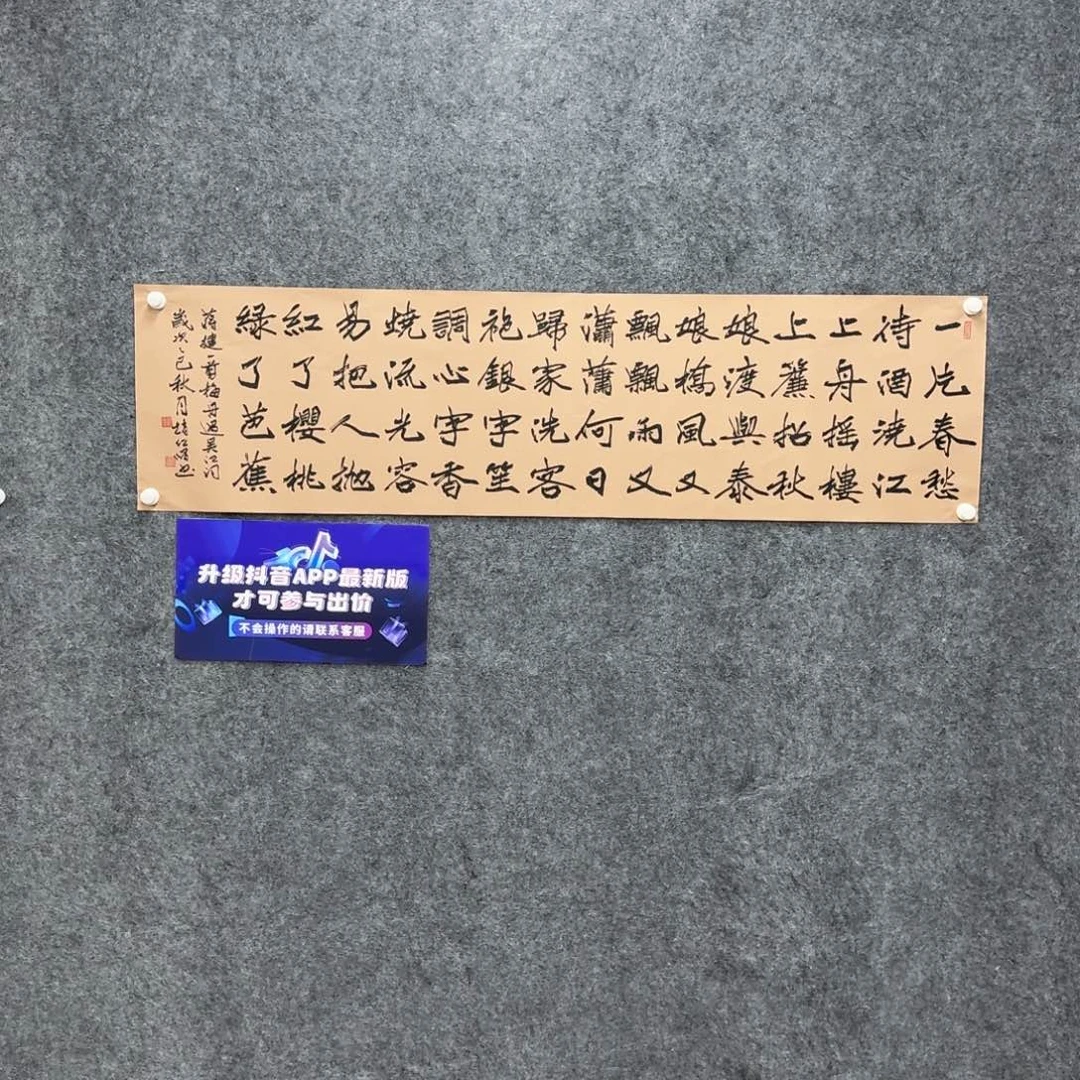 一片春愁
待酒澆江
上舟摇樓
上簾招秋
娘渡與泰
娘橋風又
飄飄雨又
瀟蕭何日
歸家洗客
袍銀字笙
調心字香
燒流光容
易把人抛
紅了櫻桃
綠了芭蕉
蔣捷一剪梅舟過吳江
歲次乙巳秋月培
升级抖音APP最新版
才可参与出价
不会操作的请联系客服